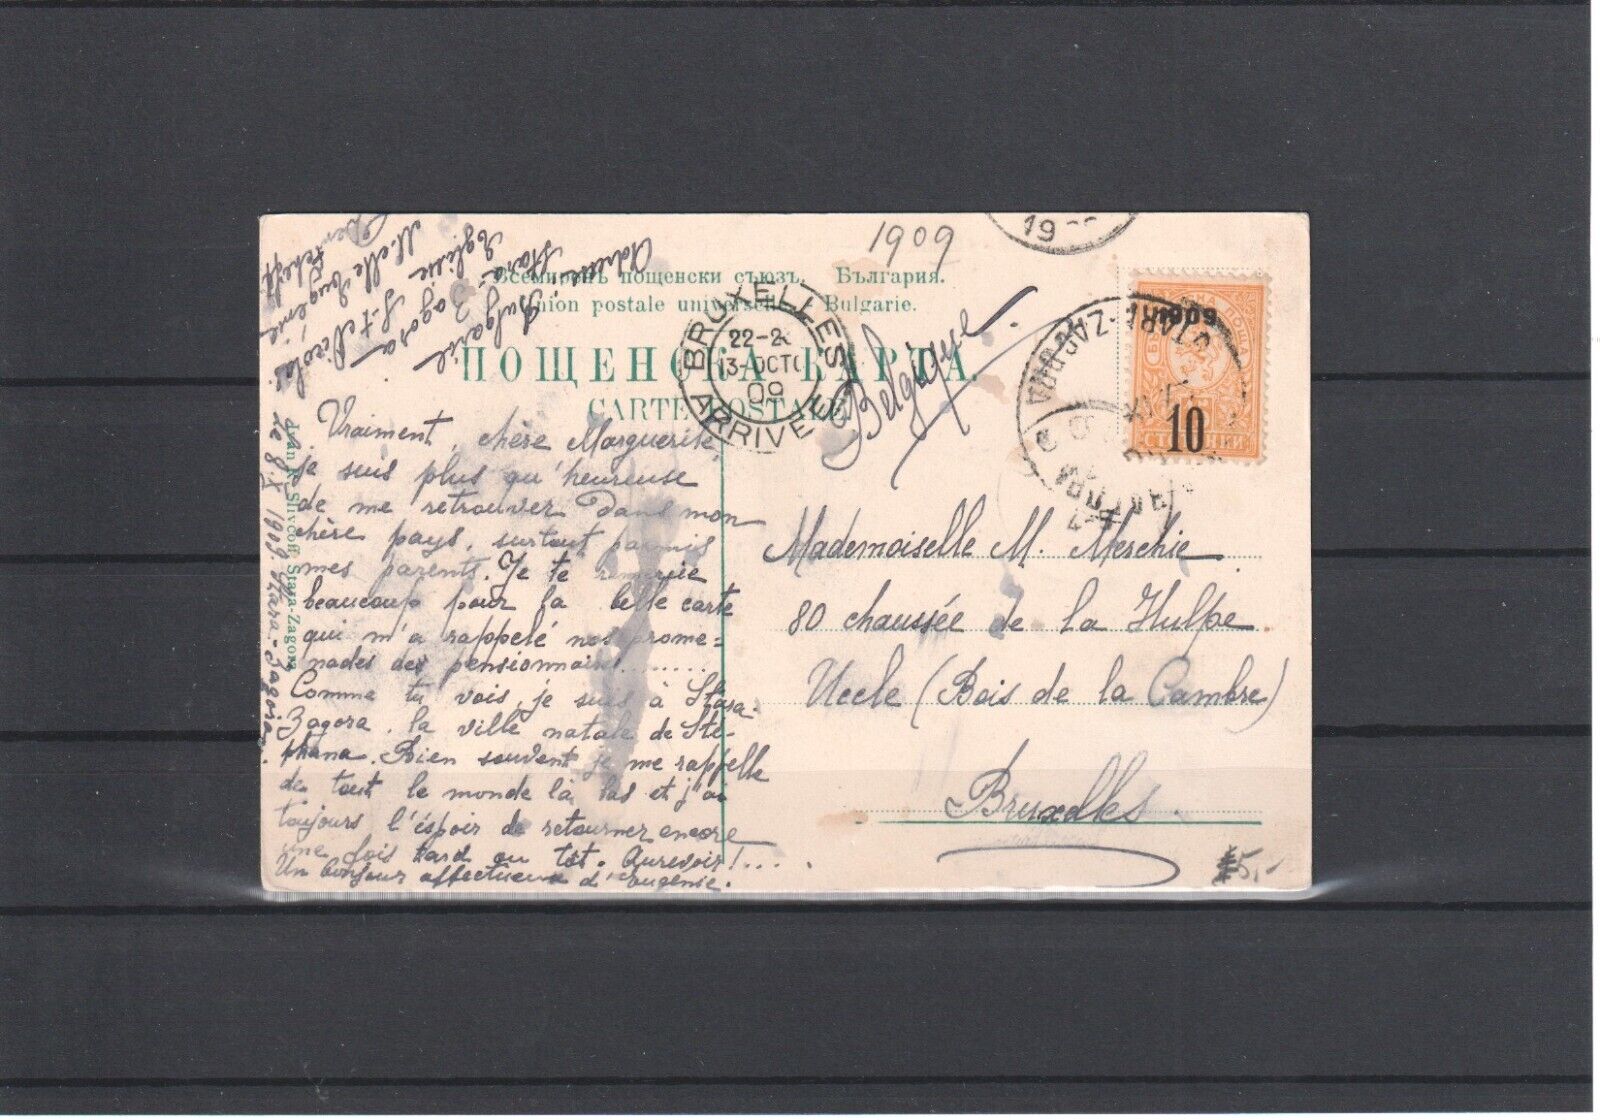 1909
Всемиренъ пощенски съюзъ. България.
Union postale universelle. Bulgarie.
ПОЩЕНСКА КАРТА.
CARTE POSTALE
Belgique
BRUXELLES
22-2
13 OCTO
09
ARRIVEE
STARA-ZAGORA
1909
10
СТОТИНКИ
19
Adresse
Stara-Zagora
Bulgarie
Eglise St Nicolas
M.elle Eugénie
Vraiment, chère Marguerite,
je suis plus qu'heureuse
de me retrouver dans mon
chère pays, surtout parmis
mes parents. Je te remercie
beaucoup pour la belle carte
qui m'a rappelé nos prome=
nades des pensionnaires........
Comme tu vois, je suis à Stara-
Zagora, la ville natale de Sté-
phana. Bien souvent je me rappelle
de tout le monde là bas et j'ai
toujours l'éspoir de retourner encore
une fois tard ou tôt. Aurevoir!....
Un bonjour affectueux d'Eugénie.
Le 8.X 1909. Stara-Zagora.
Ivan R. Slivcoff Stara-Zagora
Mademoiselle M. Merchie
80 chaussée de la Hulpe
Uccle (Bois de la Cambre)
Bruxelles.
5,-